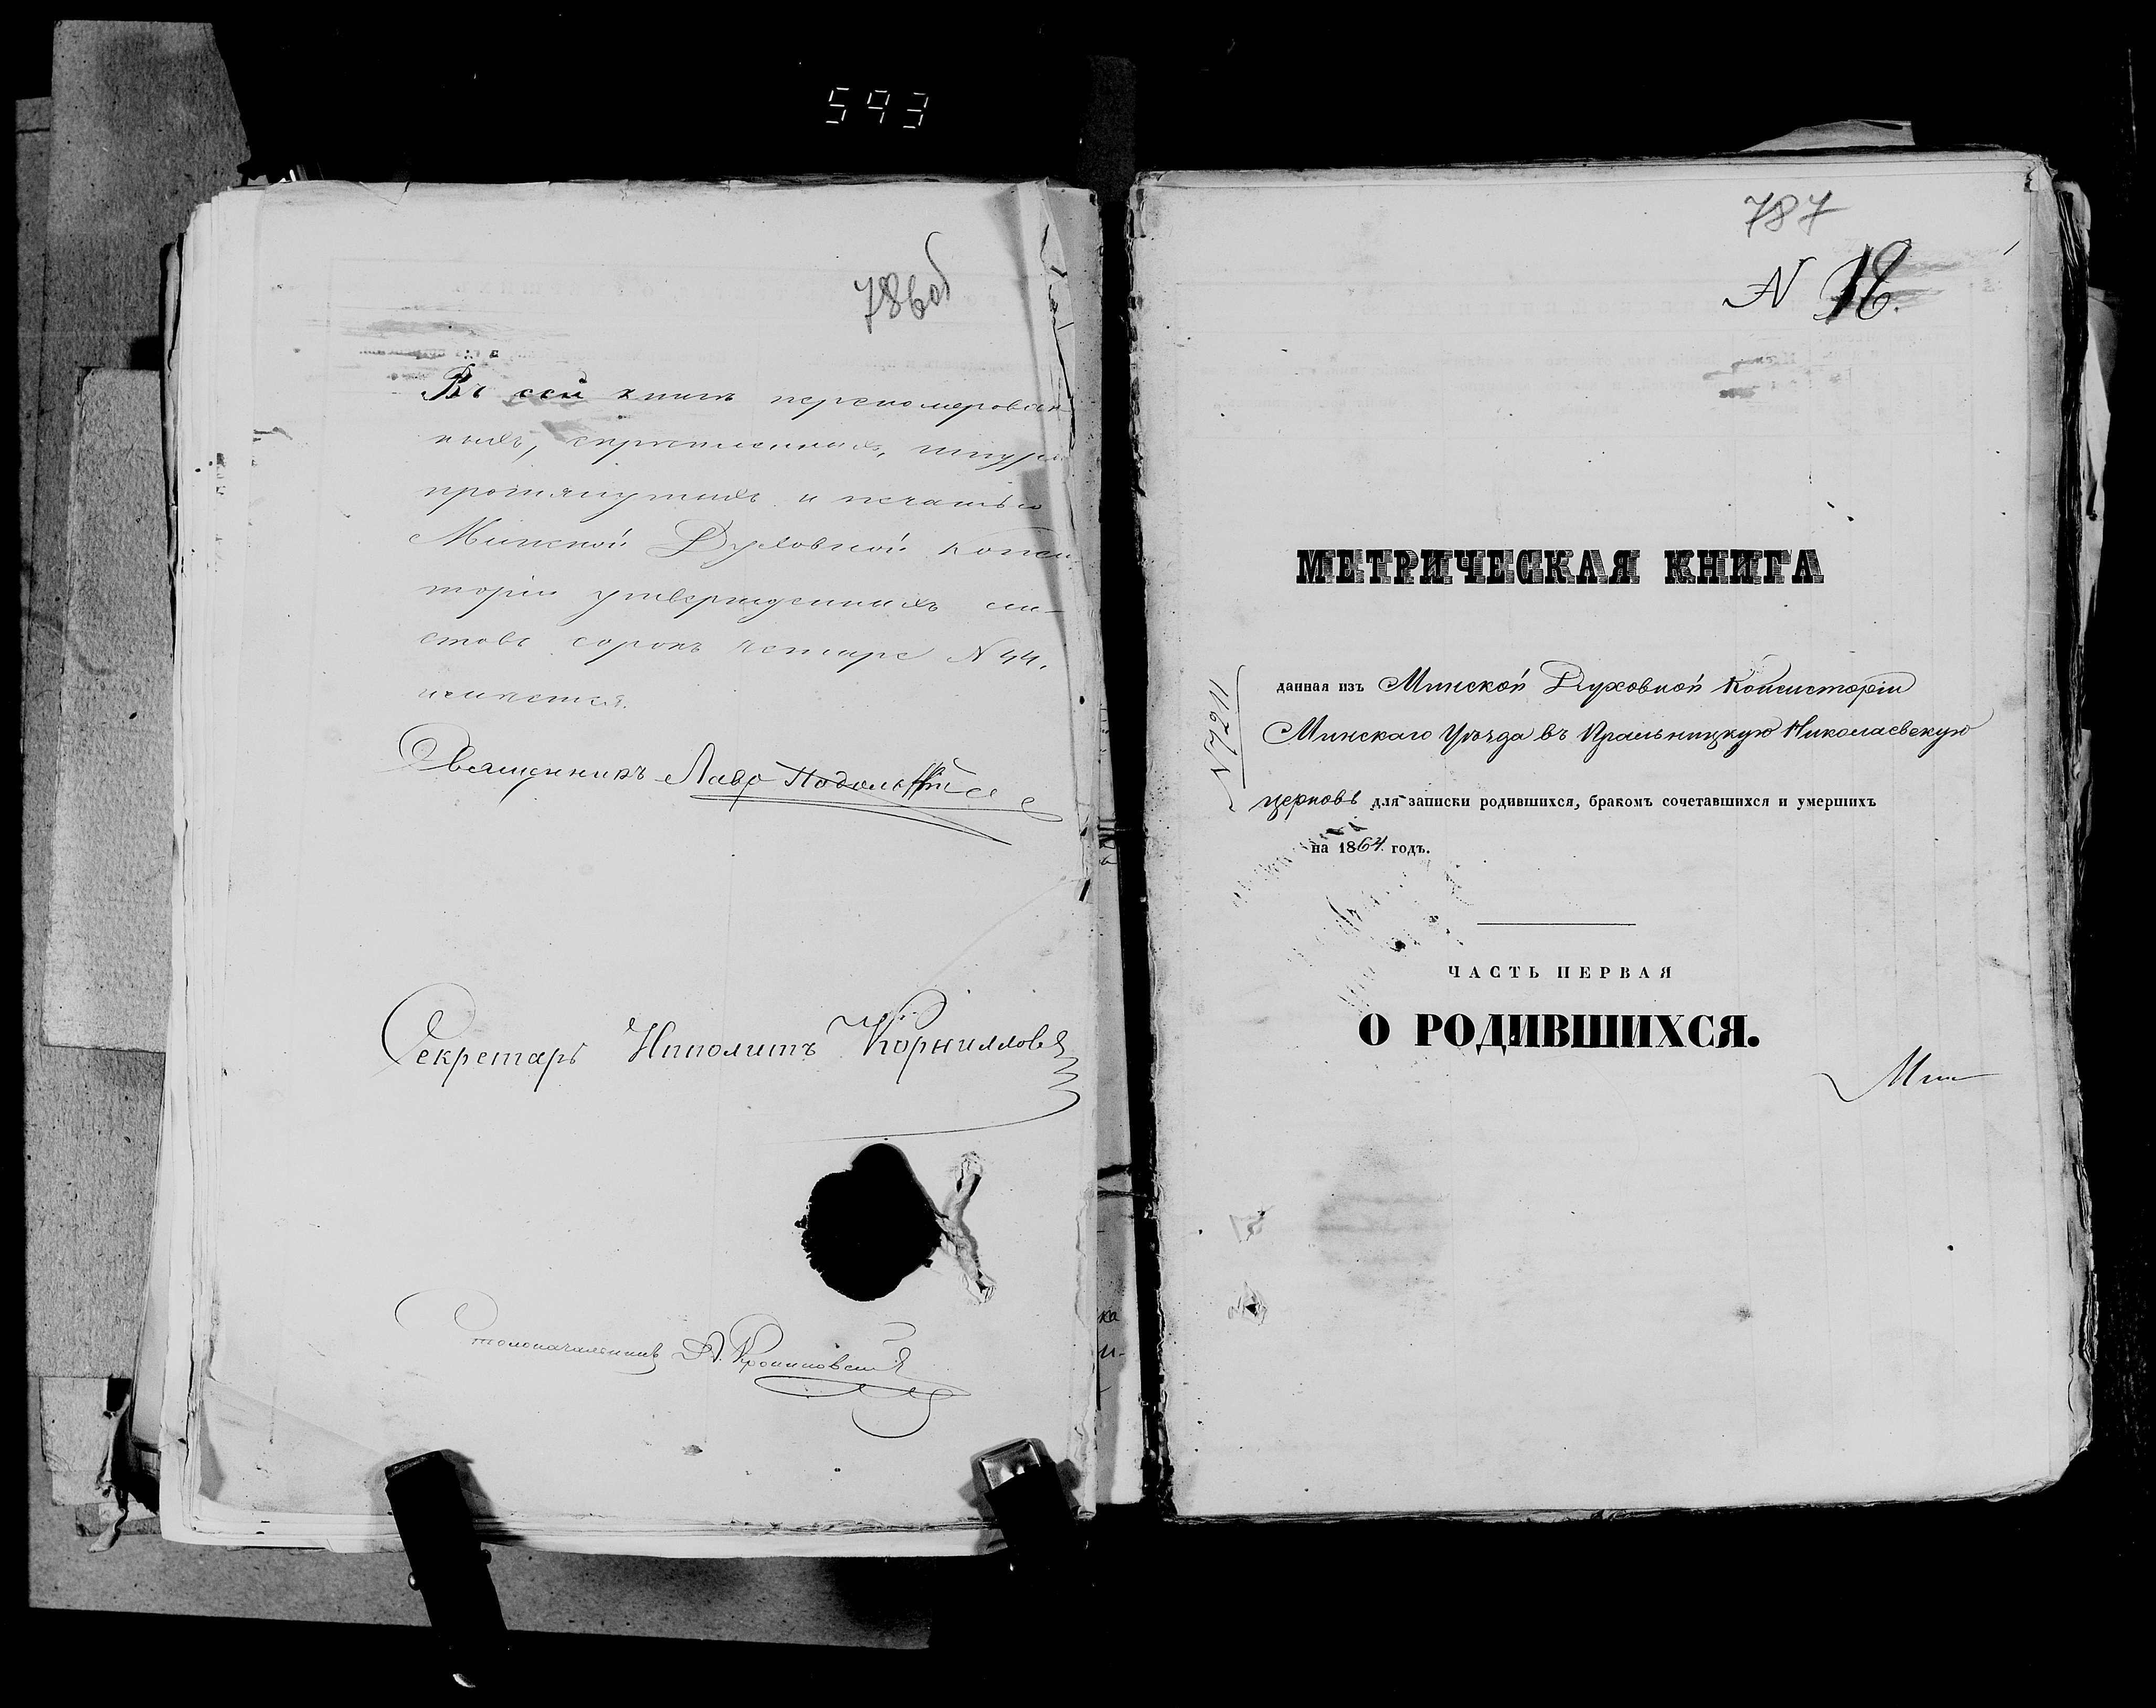 593
786об
Въ сей книгѣ перенумерован-
ныхъ, скрѣпленныхъ, шнуромъ
протянутыхъ и печатью
Минской Духовной Конси-
торіи утвержденныхъ ли-
стовъ сорокъ четыре N 44.
числится.
Священникъ Лавр Подольскій
Секретарь Иполитъ Корниловъ
Столоначальникъ
787
N
МЕТРИЧЕСКАЯ КНИГА
N 7211
данная изъ Минской Духовной Консисторіи
Минскаго Уѣзда въ Прильницкую Николаевскую
церковь для записки родившихся, бракомъ сочетавшихся и умершихъ
на 1864 годъ.
ЧАСТЬ ПЕРВАЯ
О РОДИВШИХСЯ.